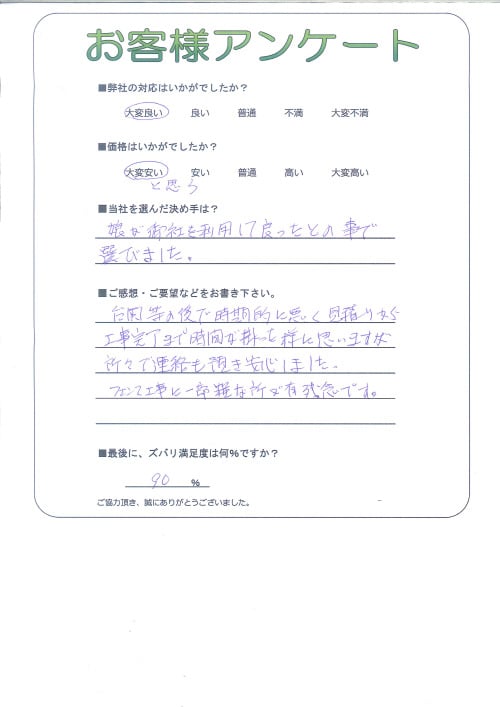 お客様アンケート
■弊社の対応はいかがでしたか？
大変良い 良い 普通 不満 大変不満
■価格はいかがでしたか？
大変安い 安い 普通 高い 大変高い
と思う
■当社を選んだ決め手は？
娘が御社を利用して良ったとの事で
選びました。
■ご感想・ご要望などをお書き下さい。
台風等の後で時期的に悪く見積りから
工事完了まで時間が掛った様に思いますが
所々で連絡も頂き安心しました。
フェンス工事に一部雑な所が有残念です。
■最後に、ズバリ満足度は何%ですか？
90 %
ご協力頂き、誠にありがとうございました。